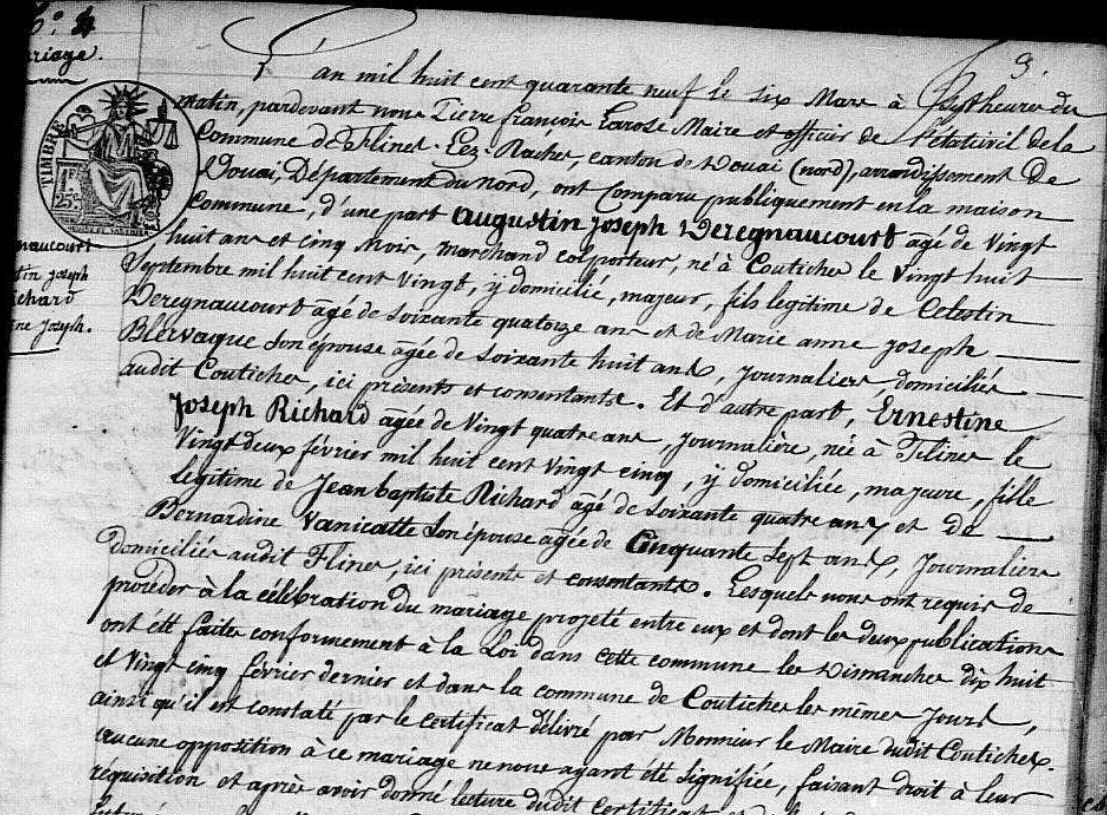 N.° 4
Mariage.
3.
L'an mil huit cent quarante neuf le six Mars à sept heures du
matin, pardevant nous Pierre françois Larose Maire et officier de l'état civil de la
Commune de Flines-Lez-Raches, canton de Douai (nord), arrondissement De
Douai, Département du nord, ont Comparu publiquement en la maison
Commune, d'une part Augustin Joseph Deregnaucourt agé de Vingt
huit ans et cinq Mois, marchand colporteur, né à Coutiches le Vingt huit
Septembre mil huit cent Vingt, y domicilié, majeur, fils legitime de Celestin
Deregnaucourt agé de soixante quatorze ans et de Marie anne joseph
Blervaque son épouse agée de soixante huit ans, journaliers domiciliés
audit Coutiches, ici présents et consentants. Et d'autre part, Ernestine
Joseph Richard agée de Vingt quatre ans, journalière, née à Flines le
Vingt deux février mil huit cent vingt cinq, y domiciliée, majeure, fille
legitime de Jean baptiste Richard agé de soixante quatre ans et de
Bernardine Vanicatte son épouse agée de Cinquante sept ans, journaliers
domiciliés audit Flines, ici présents et consentants. Lesquels nous ont requis de
procéder à la célébration du mariage projeté entre eux et dont les deux publications
ont été faites conformement à la Loi dans cette commune les Dimanches dix huit
et Vingt cinq février dernier et dans la commune de Coutiches les mêmes jours,
ainsi qu'il est constaté par le certificat délivré par Monsieur le Maire dudit Coutiches.
aucune opposition à ce mariage ne nous ayant été signifiée, faisant droit à leur
réquisition et après avoir donné lecture dudit certificat et
TIMBRE
1F.
25c.
gnaucourt
tin joseph
ichard
ine Joseph.